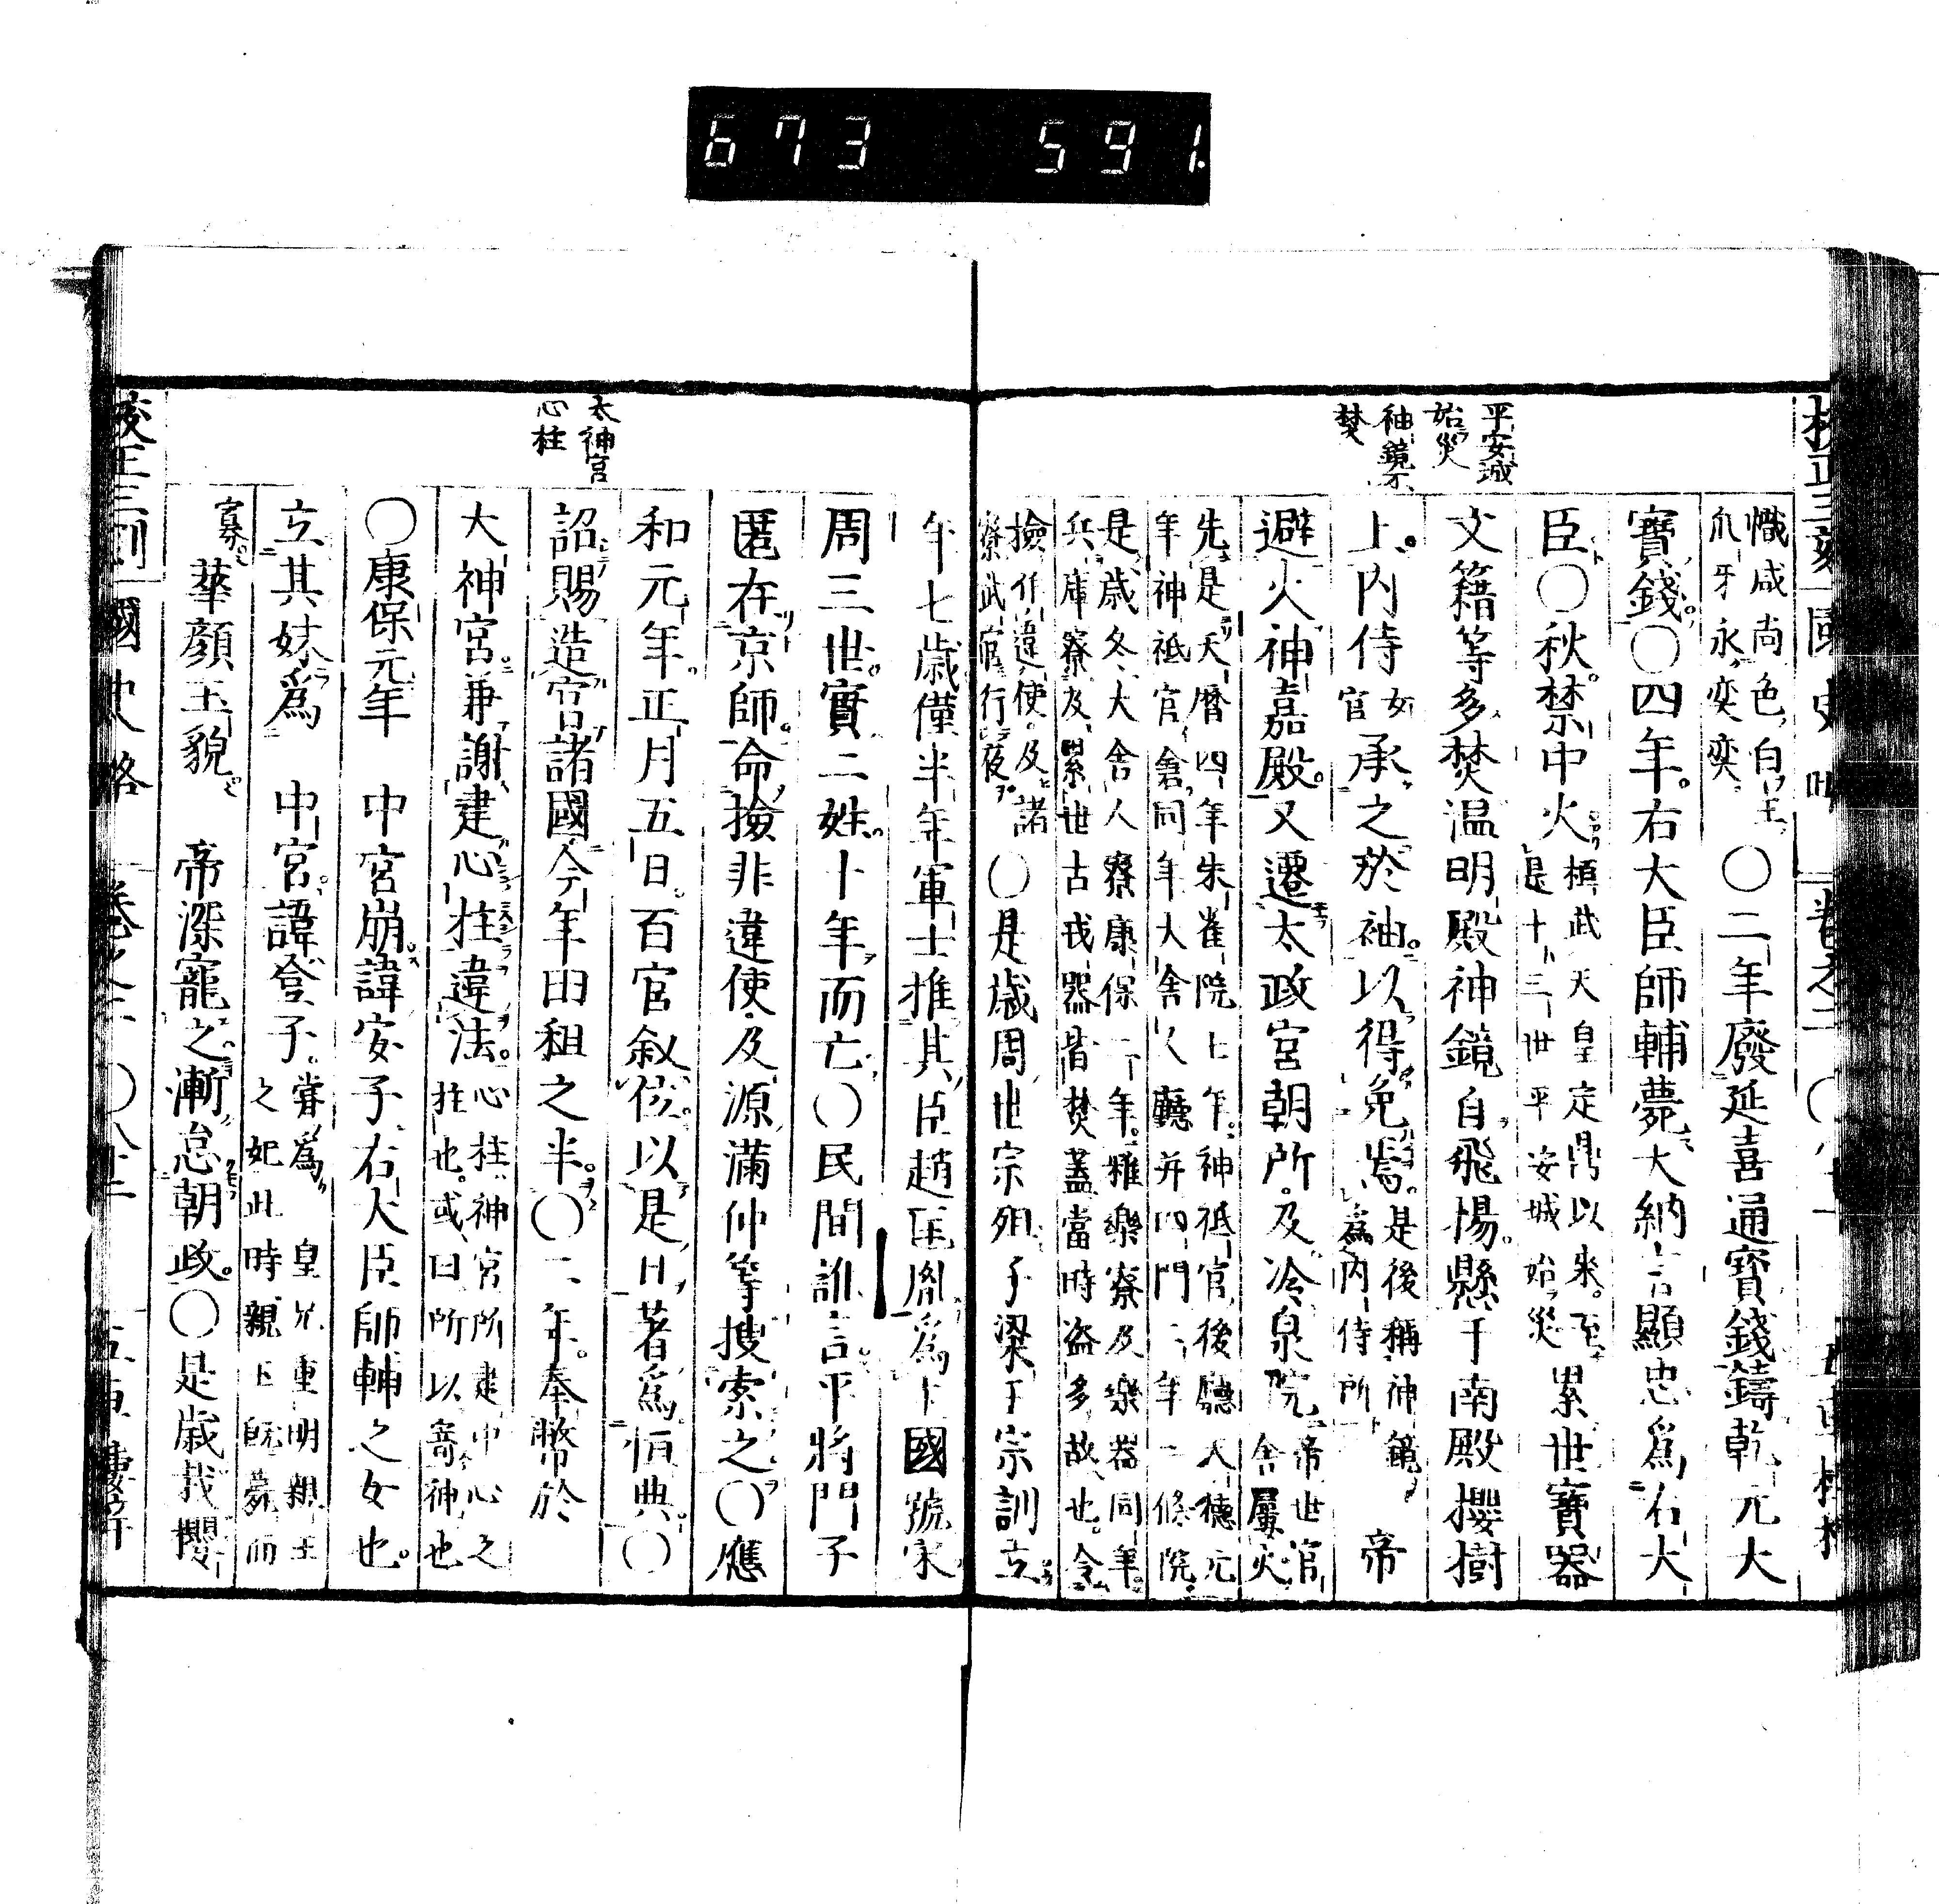 673 591.
平安城
始災
神鏡不
焚
幟咸尚色白王
爪牙永奕奕
〇二年廢延喜通寶錢鑄乾元大
寶錢〇四年右大臣師輔薨大納言顯忠爲右大
臣〇秋禁中火
桓武天皇定鼎以來至
是十三世平安城始災
累世寶器
文籍等多焚温明殿神鏡自飛揚懸于南殿櫻樹
上内侍
女
官
承之於袖以得免焉
是後稱神鏡
爲内侍所
帝
避火神嘉殿又遷太政官朝所及冷泉院
帝世官
舍屢火
先是天曆四年朱雀院上年神祇官後廳天德元
年神祇官倉同年大舍人廳并四門二年一條院
是歲冬大舍人寮康保二年雅樂寮及樂器同年
兵庫寮及累世古戎器皆焚蓋當時盗多故也令
撿非違使及諸
寮武官行夜
〇是歳周世宗殂子梁王宗訓立
年七歳僅半年軍士推其臣趙匡胤爲上國號宋
周三世實二姓十年而亡〇民間訛言平將門子
匿在京師命撿非違使及源滿仲等搜索之〇應
和元年正月五日百官敘位以是日著爲恒典〇
詔賜造宮諸國今年田租之半〇二年奉幣於
太神宮
心柱
大神宮兼謝建心柱違法
心柱神宮所建中心之
柱也或曰所以寄神也
〇康保元年 中宮崩諱安子右大臣師輔之女也
立其妹爲 中宮諱登子
嘗爲 皇兄重明親王
之妃此時親王既薨而
寡
蕐顔玉貌 帝深寵之漸怠朝政〇是歳栽櫻
國史略